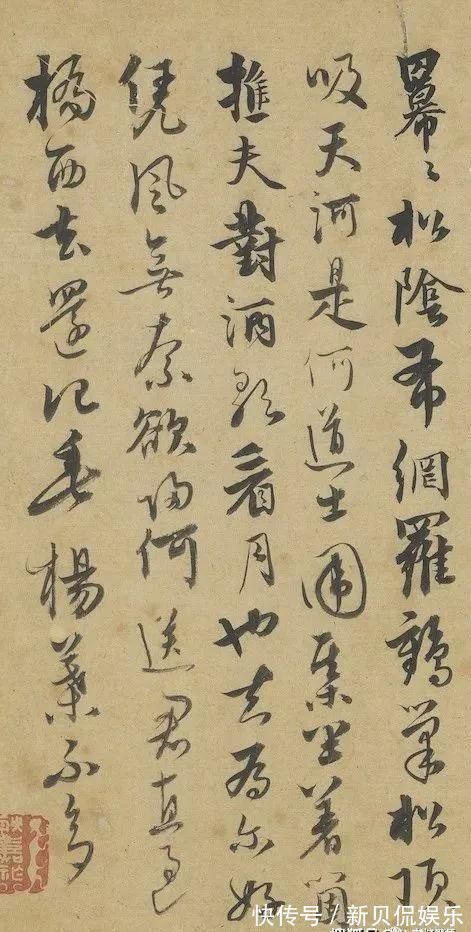 羃〻松陰布網羅鶴巢松頂
吸天河是何道士圍棊坐著箇
樵夫對酒歌看月也知為尔好
凭風無奈欲歸何送君直過
橋西去還記垂楊葉不多
快传号/新贝侃娱乐